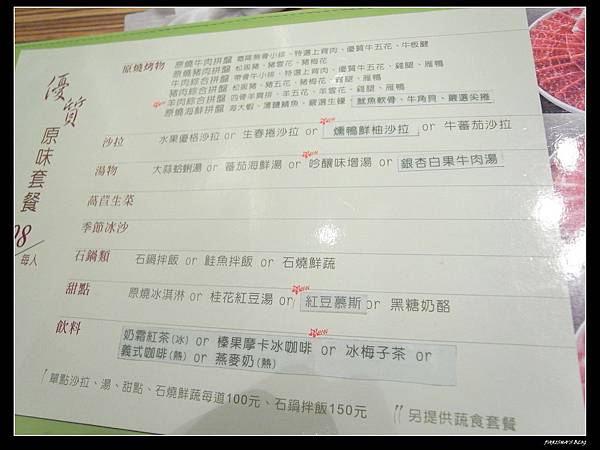 優質
原味套餐
98/每人
原燒烤物
原燒牛肉拼盤 霜降無骨小排、特選上背肉、優質牛五花、牛板腱
原燒豬肉拼盤 松阪豬、豬雪花、豬梅花
牛肉綜合拼盤 帶骨牛小排、特選上背肉、優質牛五花、雞腿、雁鴨
豬肉綜合拼盤 松阪豬、豬五花、豬梅花、雞腿、雁鴨
羊肉綜合拼盤 四骨羊肩排、羊五花、羊雪花、雞腿、雁鴨
原燒海鮮拼盤 海大蝦、薄鹽鯖魚、嚴選生蠔、魷魚軟骨、牛角貝、嚴選尖捲
沙拉 水果優格沙拉 or 生春捲沙拉 or 燻鴨鮮柚沙拉 or 牛蕃茄沙拉
湯物 大蒜蛤蜊湯 or 蕃茄海鮮湯 or 吟釀味增湯 or 銀杏白果牛肉湯
萵苣生菜
季節冰沙
石鍋類 石鍋拌飯 or 鮭魚拌飯 or 石燒鮮蔬
甜點 原燒冰淇淋 or 桂花紅豆湯 or 紅豆慕斯 or 黑糖奶酪
飲料 奶霜紅茶(冰) or 榛果摩卡冰咖啡 or 冰梅子茶 or
義式咖啡(熱) or 燕麥奶(熱)
單點沙拉、湯、甜點、石燒鮮蔬每道100元、石鍋拌飯150元
另提供蔬食套餐
PARISWA'S BLOG